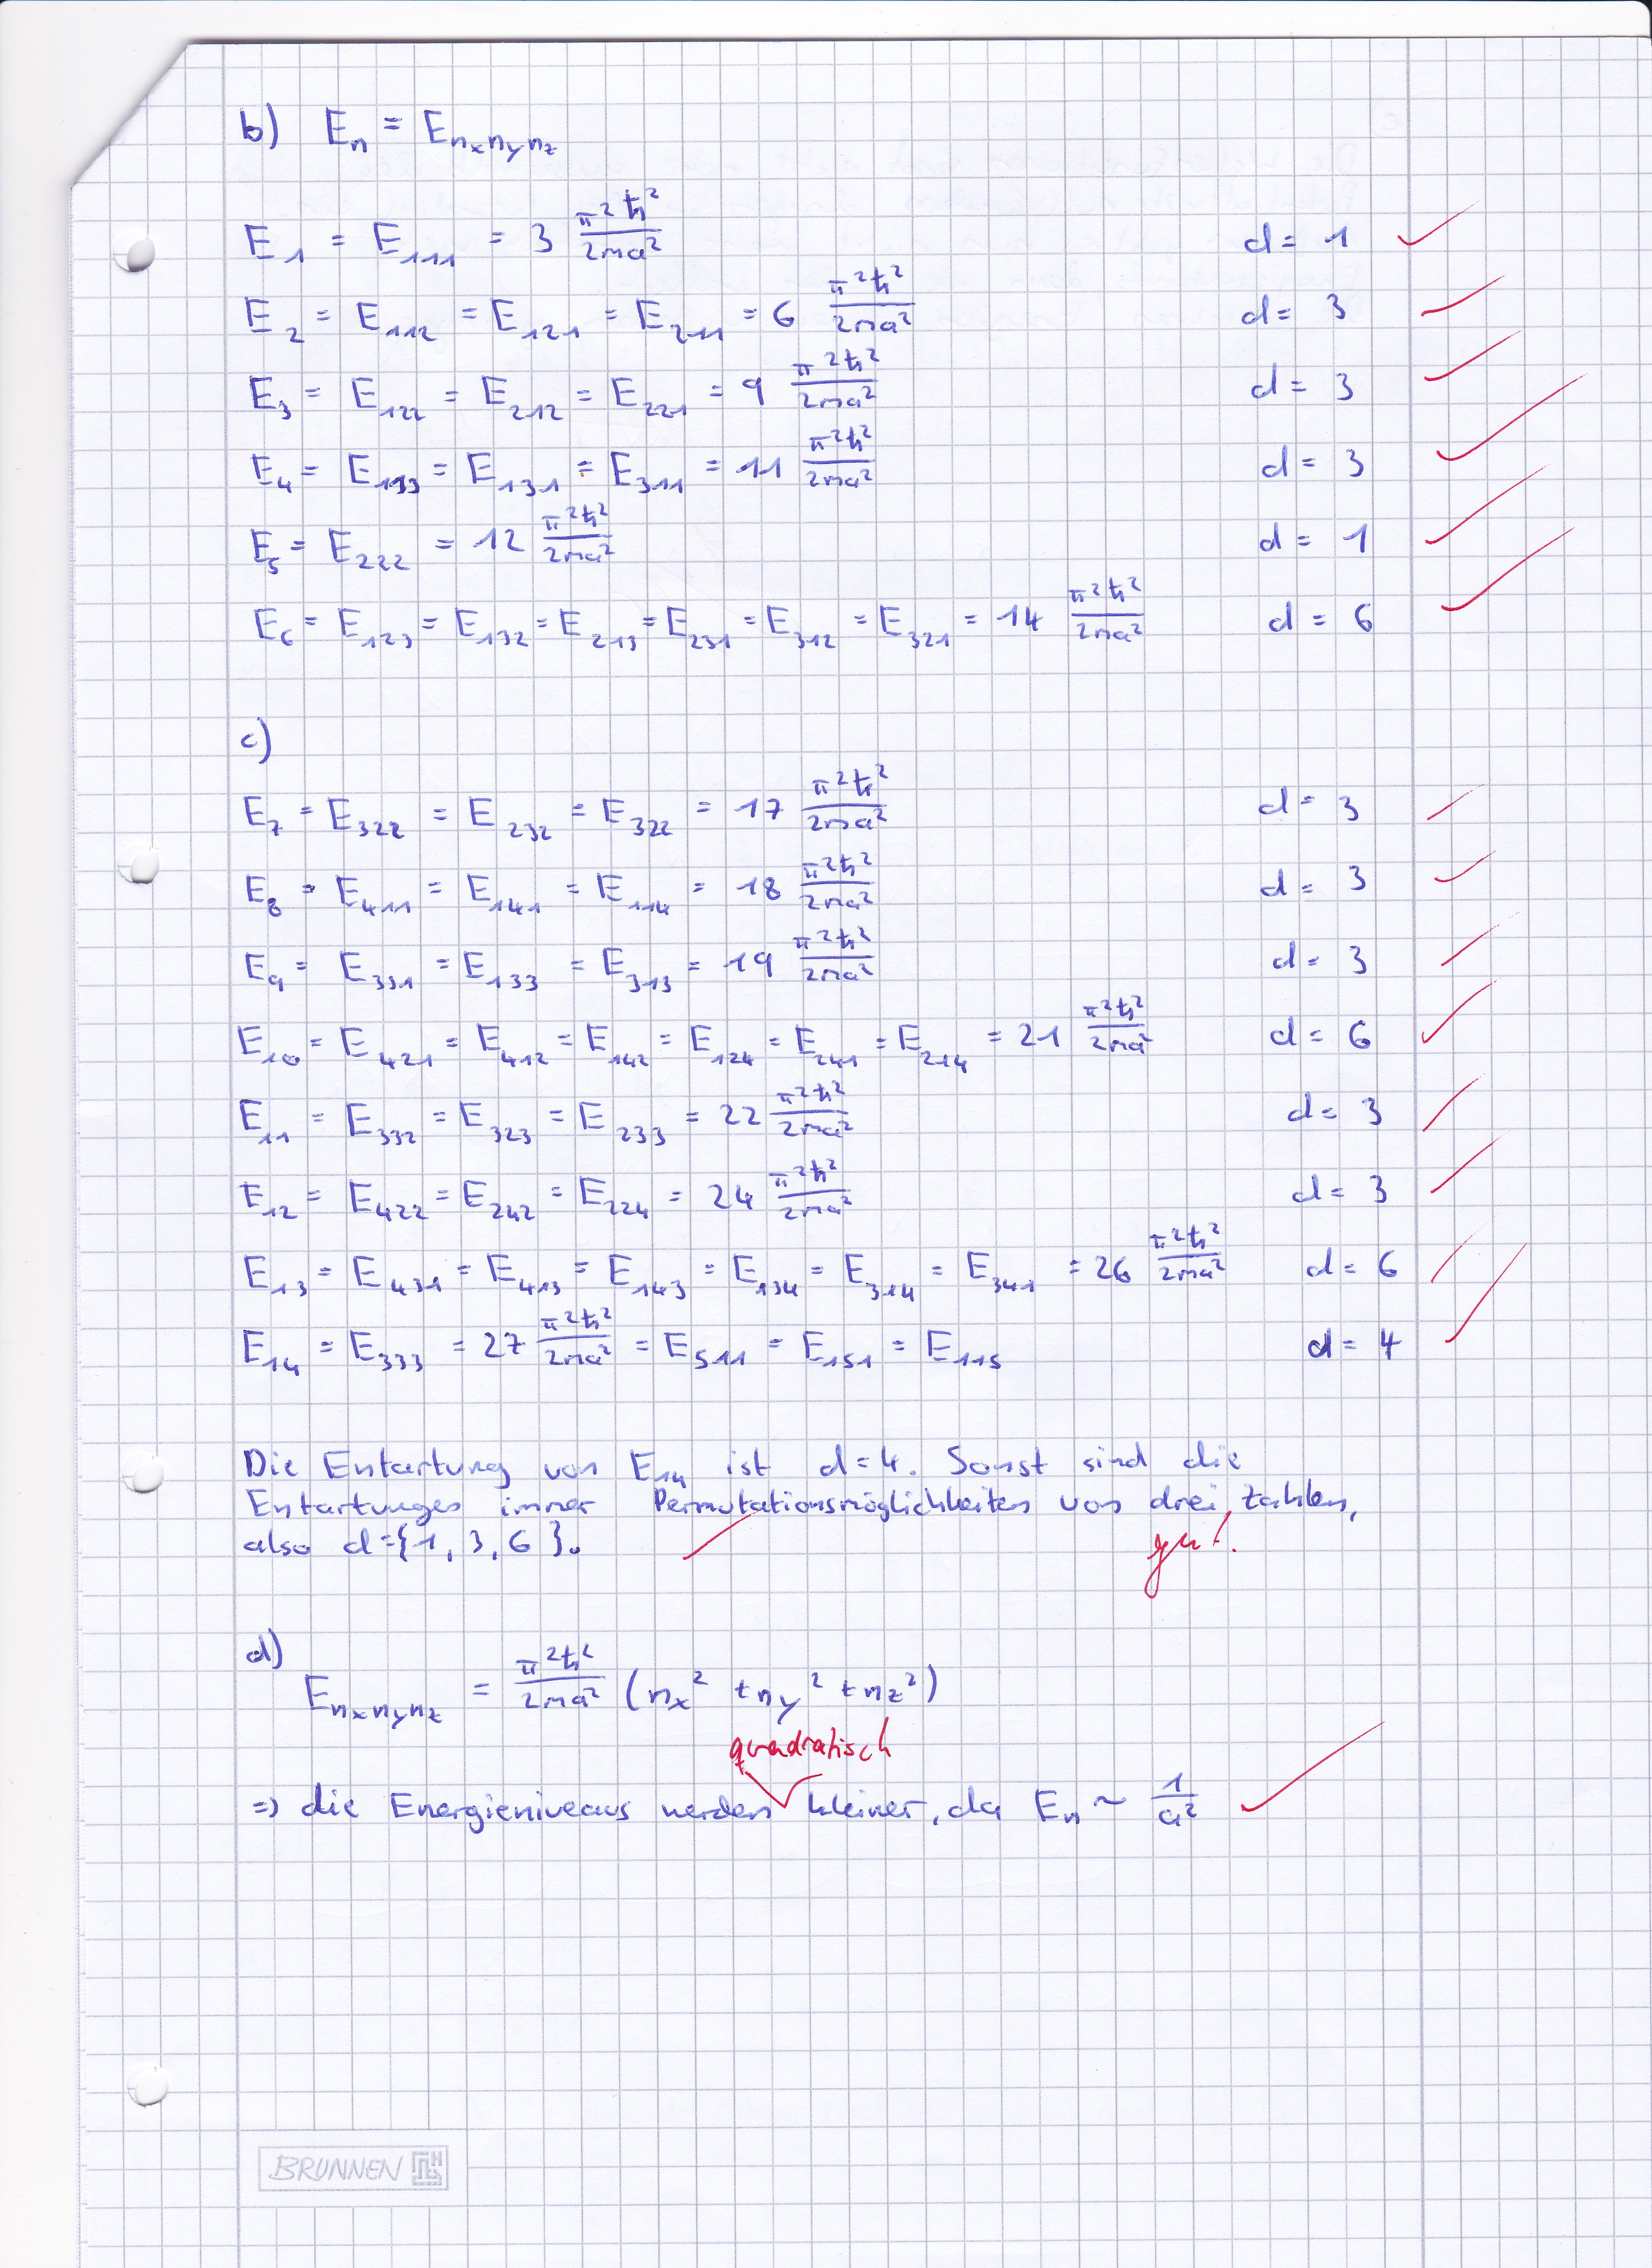 b) E_n = E_{n_x n_y n_z}
E_1 = E_{111} = 3 \frac{π²ħ²}{2ma²} d = 1 ✓
E_2 = E_{112} = E_{121} = E_{211} = 6 \frac{π²ħ²}{2ma²} d = 3 ✓
E_3 = E_{122} = E_{212} = E_{221} = 9 \frac{π²ħ²}{2ma²} d = 3 ✓
E_4 = E_{113} = E_{131} = E_{311} = 11 \frac{π²ħ²}{2ma²} d = 3 ✓
E_5 = E_{222} = 12 \frac{π²ħ²}{2ma²} d = 1 ✓
E_6 = E_{123} = E_{132} = E_{213} = E_{231} = E_{312} = E_{321} = 14 \frac{π²ħ²}{2ma²} d = 6 ✓
c)
E_7 = E_{322} = E_{232} = E_{322} = 17 \frac{π²ħ²}{2ma²} d = 3 ✓
E_8 = E_{411} = E_{141} = E_{114} = 18 \frac{π²ħ²}{2ma²} d = 3 ✓
E_9 = E_{331} = E_{133} = E_{313} = 19 \frac{π²ħ²}{2ma²} d = 3 ✓
E_{10} = E_{421} = E_{412} = E_{142} = E_{124} = E_{241} = E_{214} = 21 \frac{π²ħ²}{2ma²} d = 6 ✓
E_{11} = E_{332} = E_{323} = E_{233} = 22 \frac{π²ħ²}{2ma²} d = 3 ✓
E_{12} = E_{422} = E_{242} = E_{224} = 24 \frac{π²ħ²}{2ma²} d = 3 ✓
E_{13} = E_{431} = E_{413} = E_{143} = E_{134} = E_{314} = E_{341} = 26 \frac{π²ħ²}{2ma²} d = 6 ✓
E_{14} = E_{333} = 27 \frac{π²ħ²}{2ma²} = E_{511} = E_{151} = E_{115} d = 4 ✓
Die Entartung von E_{14} ist d = 4. Sonst sind die
Entartunges immer Permutationsmöglichkeiten von drei Zahlen,
also d = {1, 3, 6}. ✓ gut!
d)
E_{n_x n_y n_z} = \frac{π²ħ²}{2ma²} (n_x² + n_y² + n_z²)
quadratisch
⇒ die Energieniveaus werden kleiner, da E_n ~ \frac{1}{a²} ✓
BRUNNEN